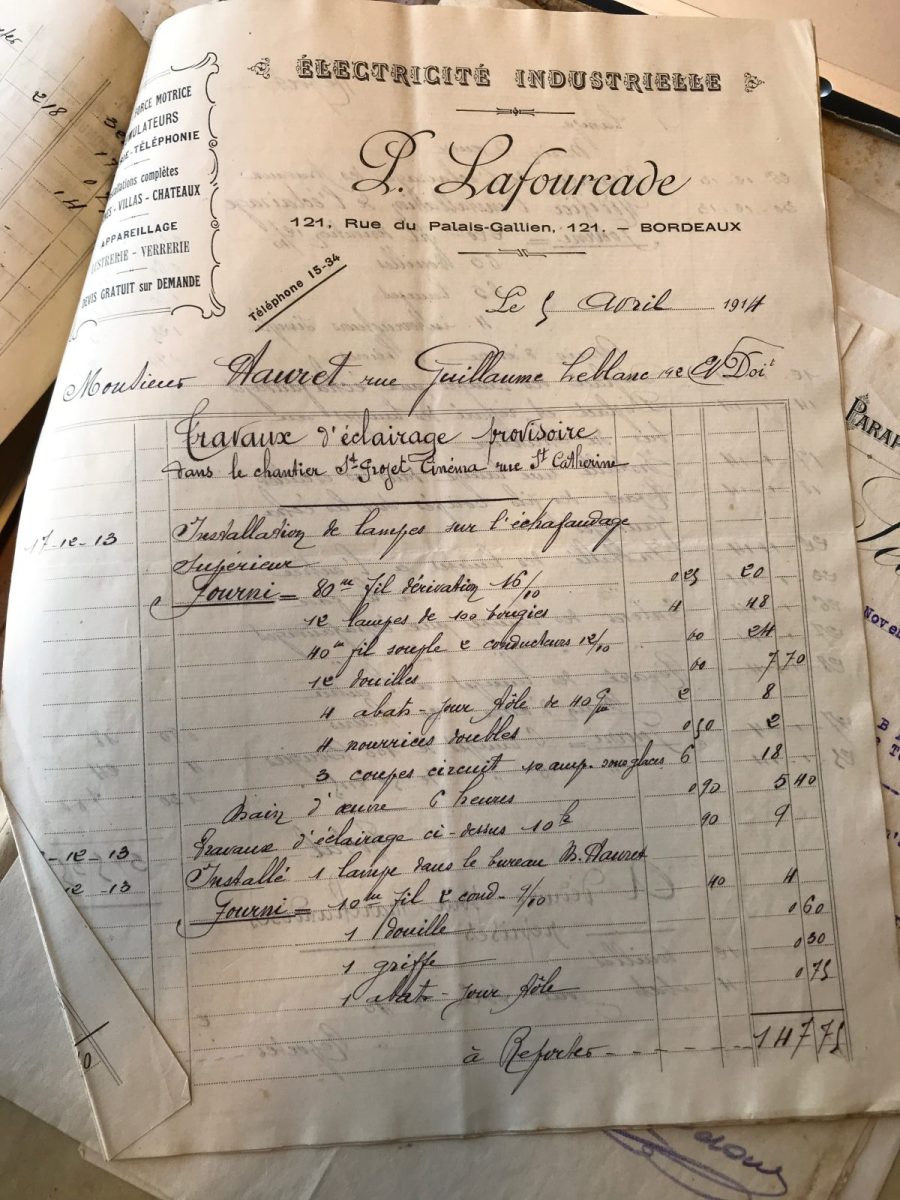 ÉLECTRICITÉ INDUSTRIELLE
P. Lafourcade
121, Rue du Palais-Gallien, 121. – BORDEAUX
FORCE MOTRICE
TÉLÉPHONIE
complètes
VILLAS - CHATEAUX
APPAREILLAGE
VERRERIE
DEVIS GRATUIT sur DEMANDE
Téléphone 15-34
Le 5 Avril 1914
Monsieur Hauret rue Guillaume Leblanc Doit
Travaux d'éclairage provisoire
dans le chantier St Projet Cinéma rue St Catherine
17-12-13 Installation de lampes sur l'échafaudage
Supérieur
Fourni = 80m fil dérivation 16/10 0 25 20
12 lampes de 100 bougies 4 48
40m fil souple 2 conducteurs 12/10 60 24
12 douilles 60 7 70
4 abat-jour tôle de 40 2 8
4 nourrices doubles 0 50 2
3 coupes circuit 10 amp. sous glaces 6 18
Main d'œuvre 6 heures 0 90 5 40
-12-13 Travaux d'éclairage ci-dessus 10h 90 9
-12-13 Installé 1 lampe dans le bureau M. Hauret
Fourni = 10m fil 2 cond. 9/10 40 4
1 douille 0 60
1 griffe 0 30
1 abat-jour tôle 0 75
à Reporter 147 75
218
PARAF
Nove